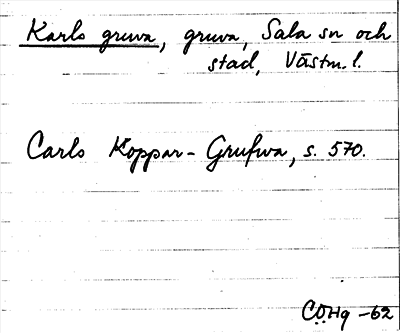 Karls gruva, gruva, Sala sn och
stad, Västm. l.
Carls Koppar-Grufwa, s. 570.
CÖHg -62